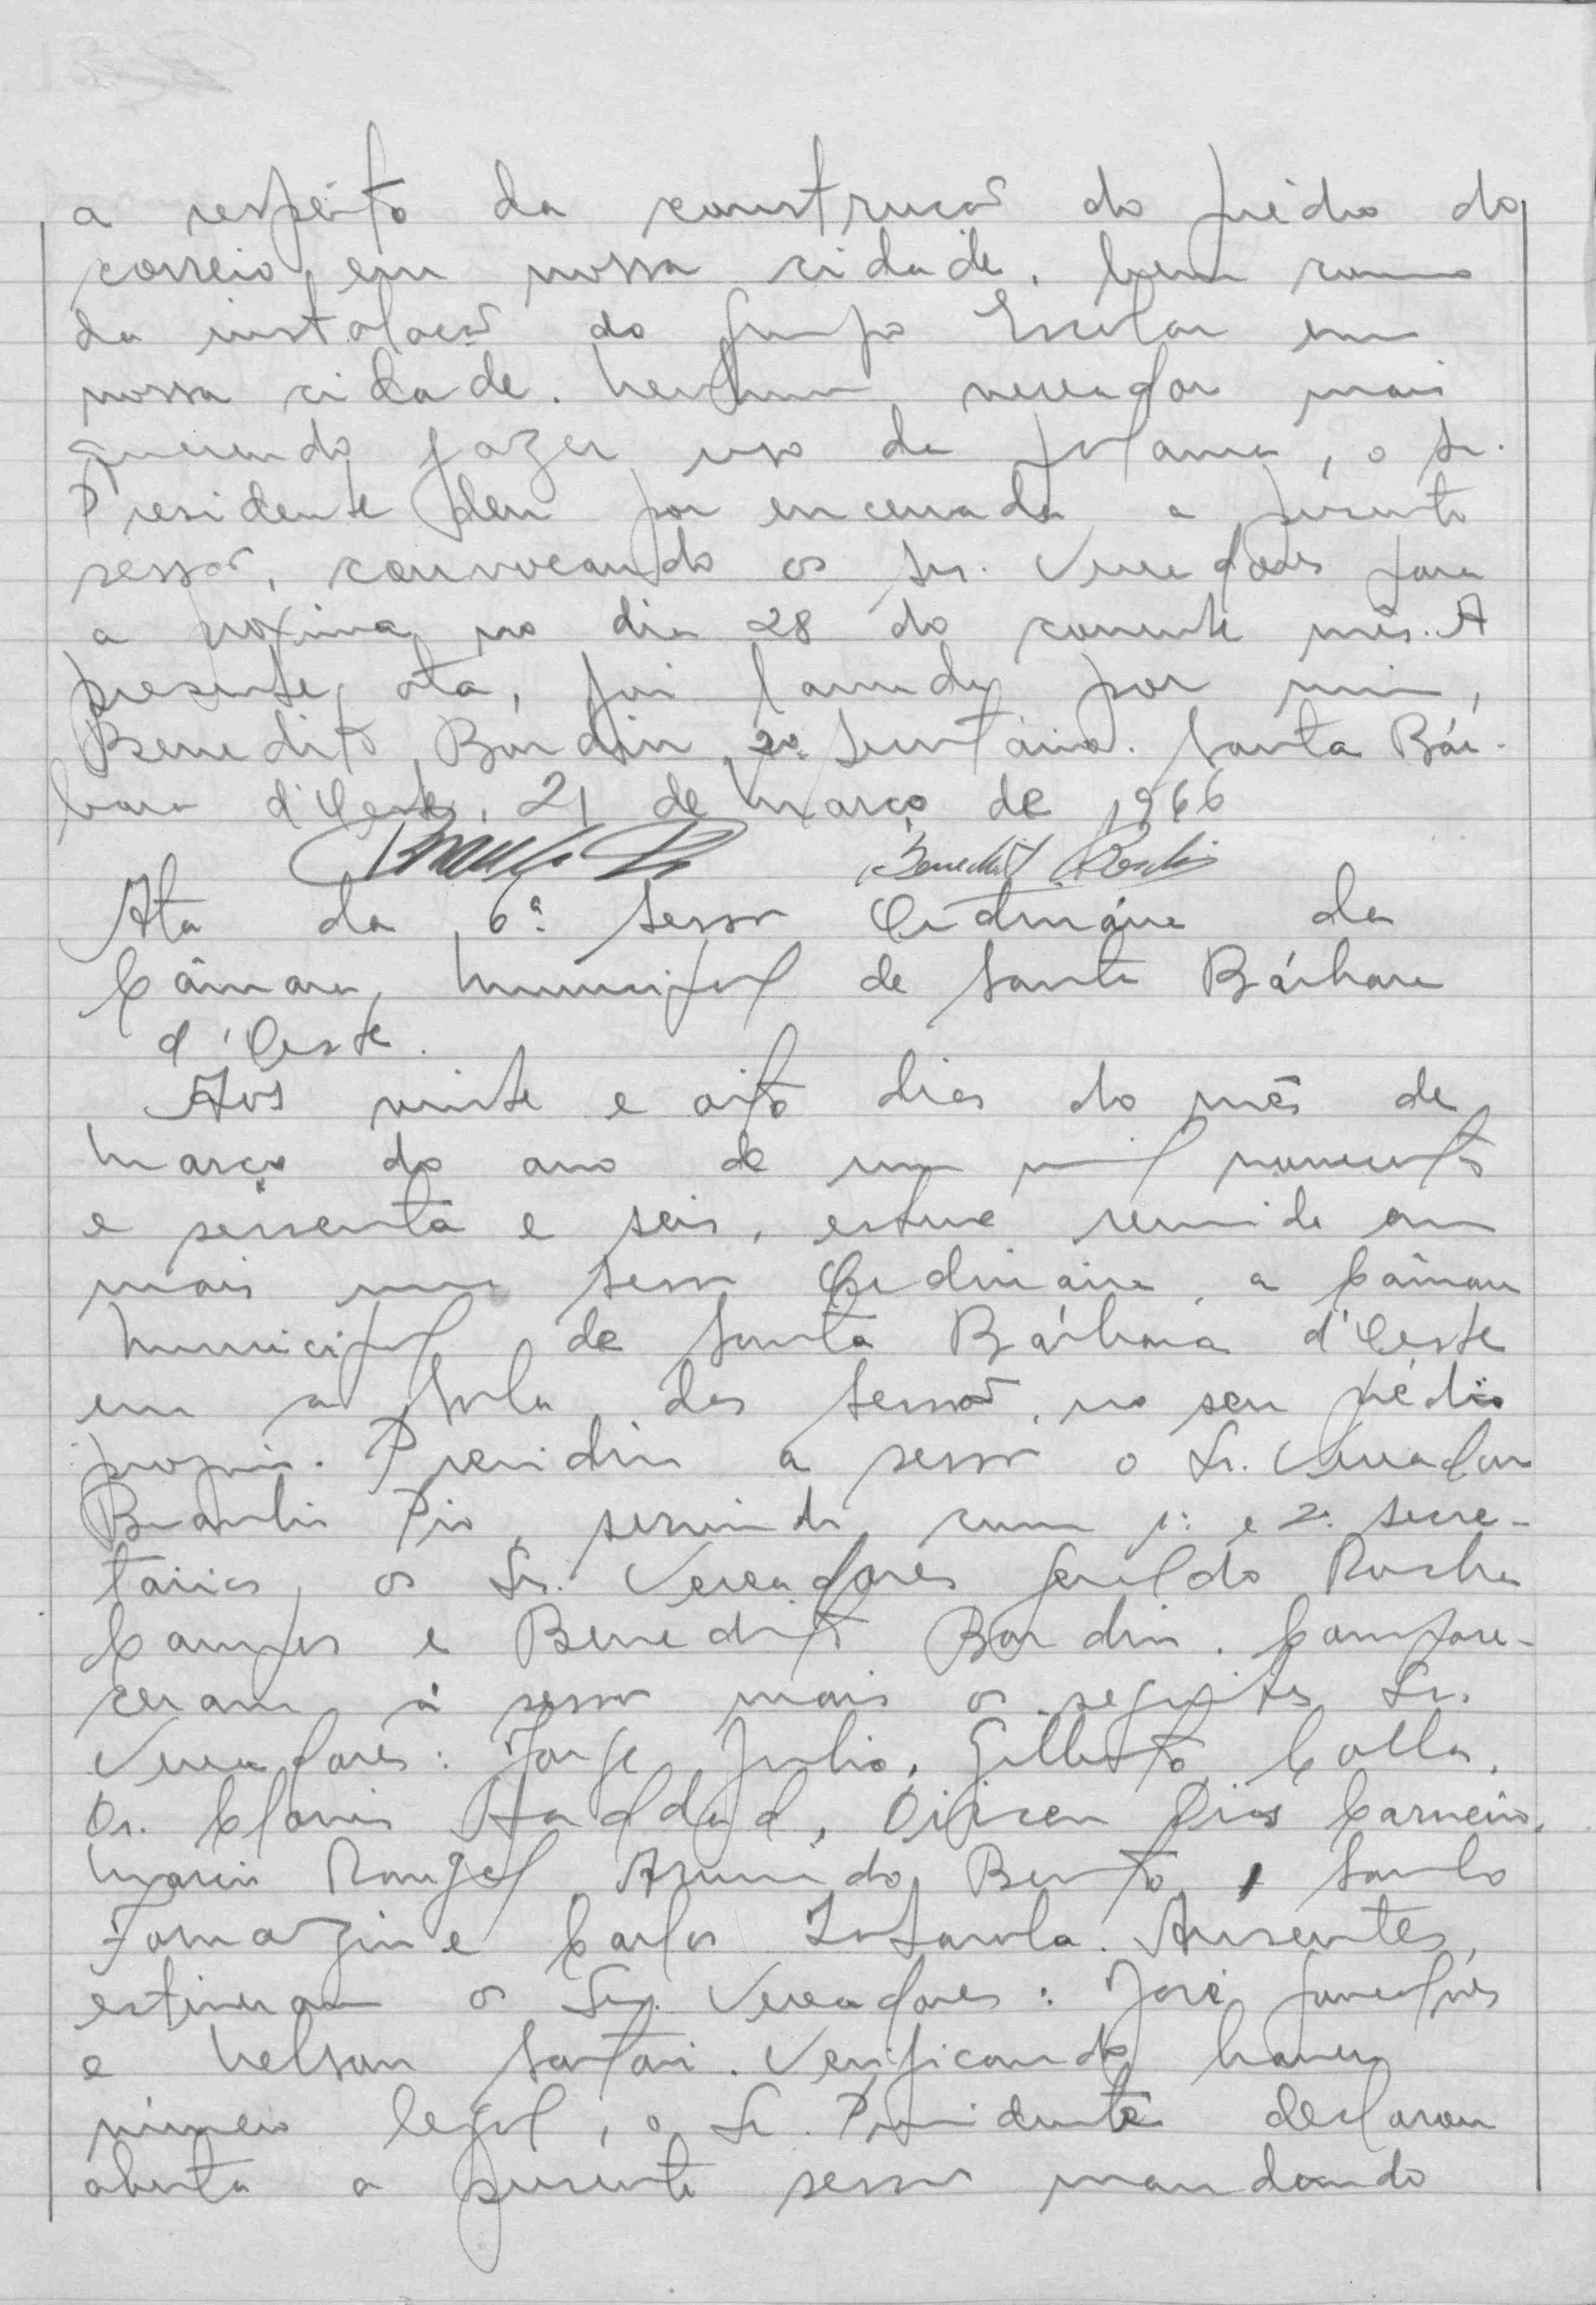 a respeito da construção do prédio do
correio em nossa cidade, bem como
da instalação do Grupo Escolar em
nossa cidade. Nenhum vereador mais
querendo fazer uso da palavra, o Sr.
Presidente deu por encerrada a presente
sessão, convocando os Srs. Vereadores para
a proxima no dia 28 do corrente mês. A
presente ata, foi lavrada por mim,
Benedito Bordin 2º Secretário. Santa Bár-
bara d'Oeste, 21 de Março de 1966
Benedito Bordin
Ata da 6ª Sessão Ordinária da
Câmara Municipal de Santa Bárbara
d'Oeste.
Aos vinte e oito dias do mês de
Março do ano de um mil novecentos
e sessenta e seis, esteve reunida em
mais uma Sessão Ordinária, a Câmara
Municipal de Santa Bárbara d'Oeste
em a Sala das Sessão, no seu prédio
proprio. Presidiu a sessão o Sr. Vereador
Braulio Pio, servindo como 1º e 2º Secre-
tários, os Srs. Vereadores Geraldo Rocha
Campos e Benedito Bordin. Compare-
ceram à sessão mais os seguintes Srs.
Vereadores: Jorge Julio, Gilberto Colla,
Dr. Clovis Haddad, Dirceu Dias Carneiro,
Marcio Rangel, Armindo Bento, Santo
Tomazin e Carlos. Ausentes,
estiveram os Srs. Vereadores: José
e Nelson Sartori. Verificando haver
número legal, o Sr. Presidente declarou
aberta a presente sessão mandando